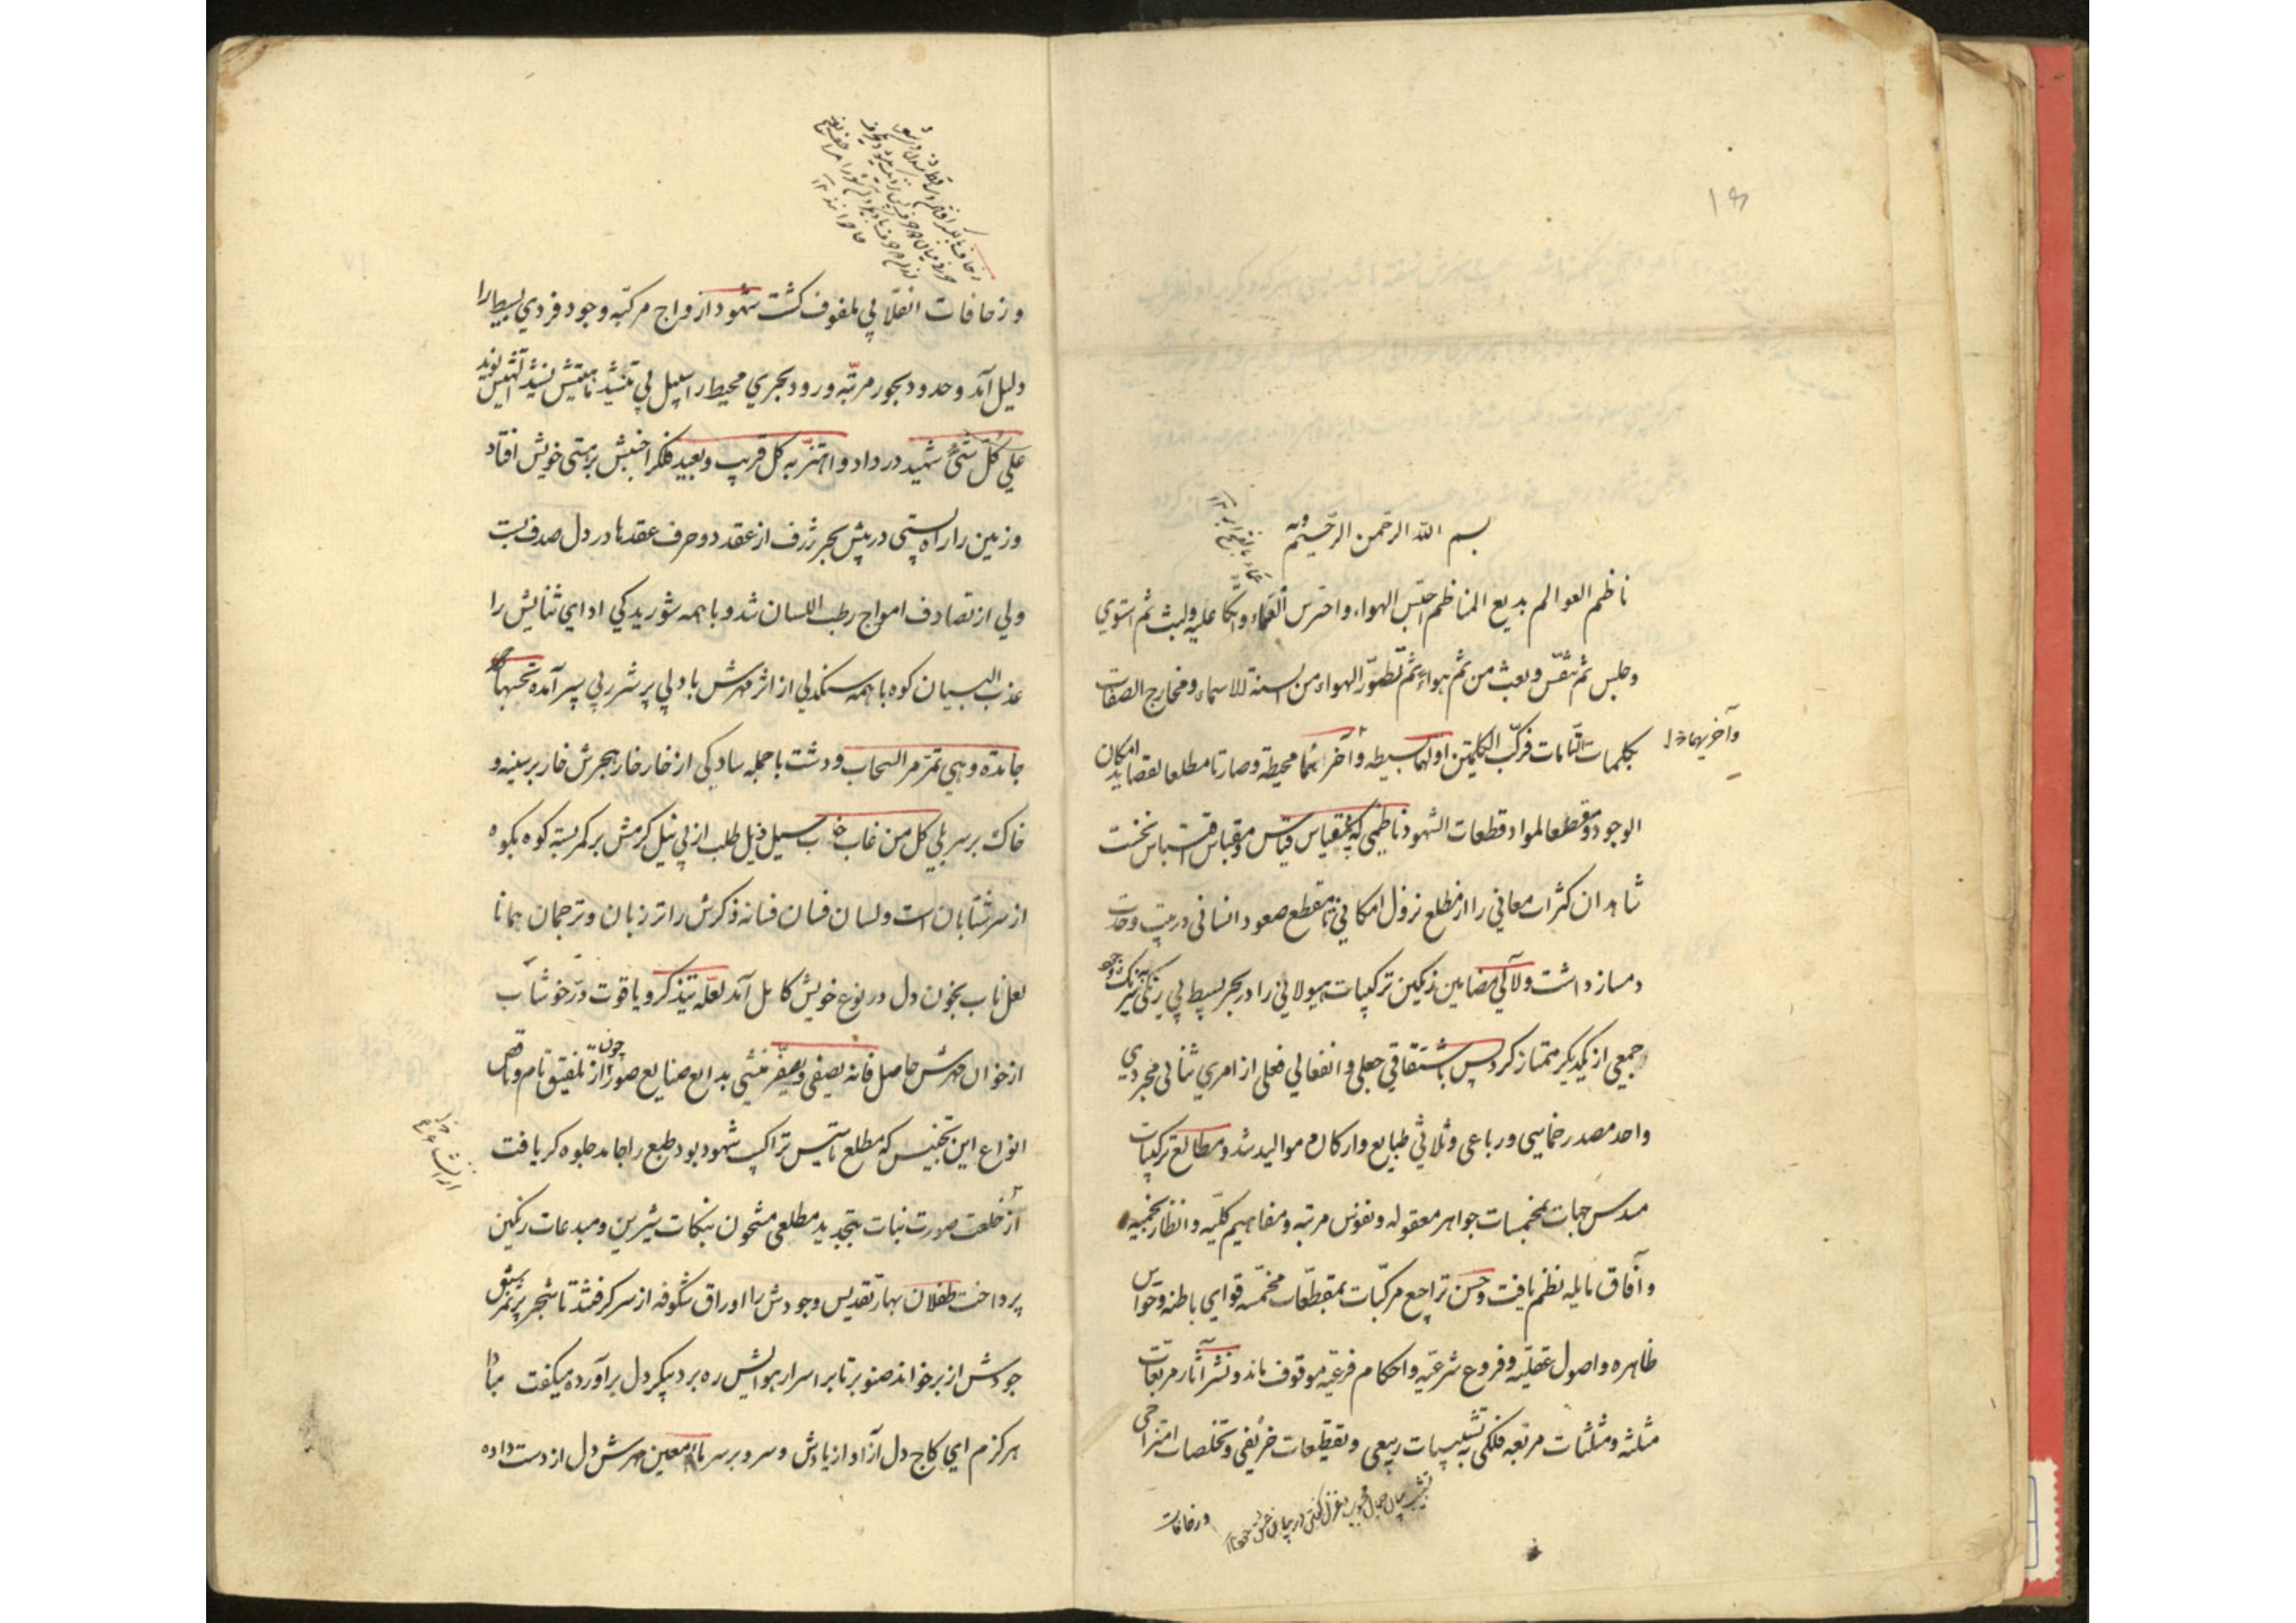 ۱۶
بسم الله الرحمن الرحیم وبه
ناظم العوالم بدیع المناظم احتبس الهواء واخترس العماء واتکا علیه ولبث ثم استوی
وجلس ثم تنفّس وبعث من ثم هواء ثم تطوّر الهواء من السنة الاسماء ومخارج الصفات
بکلمات التامات فرکّب الکلمتین اولهما بسیطه وآخرا محیطة وصارتا مطلعا لقصاید امکان
وآخریهما
الوجود ومقطعا لمواد قطعات الشهود ناظمی که بمقیاس قیاس ومقباس اقتباس نخست
شاهدان کثرات معانی را از مطلع نزول امکانی تا مقطع صعود انسانی در بیت وحدت
دمساز داشت ولآلی مضامین رنگین ترکیبات هیولانی را در بحر بسیط بی رنگی نیرنگ
جمعی از یکدیگر ممتاز کرد پس باشتقاقی جعلی وانفعالی فعلی از امری ثنائی مجردی
واحد مصدر خماسی ورباعی وثلاثی طبایع وارکان و موالید شد ومطالع ترکیبات
مسدس جهات بمخمسات جواهر معقوله ونفوس مرتبه ومفاهیم کلّیه وانظار نجمیه
وآفاق مایله نظم یافت وحسن تراجع مرکّبات بمقطّعات مخمّسه قوای باطنه وحواس
ظاهره واصول عقلیّه وفروع شرعیّه واحکام فرعیّه موقوف ماند ونشر آثار مربعات
مثلثه ومثلثات مربّعه فلکی به تشبیبات ربیعی وتقطیعات خریفی وتخلصات امتزاجی
تشبیب بیان جمال محبوب وغزل گفتن در بیان عشق
وزحافات
وزحافات انقلابی ملفوف گشت شهود ازواج مرکبّه وجود فردی بسیط را
دلیل آمد وحدود بحور مرتّبه ورود بحری محیط را سبیل پی تنشید نامیتش نشید انه لشهید
علی کل شیئ شهید در داد واهتزّ به کل قریب وبعید فلک را جنبش بر هستی خویش افتاد
وزمین را راه پستی در پیش بحر ژرف از عقد دو حرف عقدها در دل صدف بست
ولی از تصادف امواج رطب اللسان شد وبا همه شوریدگی ادای ثنایش را
عذب البیان کوه با همه سنگدلی از اثر مهرش با دلی پر شرر پی سپر آمده تحسبها
جامدة وهی تمرّ مر السحاب ودشت با جمله سادگی از خار خار هجرش خار بر سینه و
خاک بر سر بلی کل من غاب خاب سیل ذیل طلب از پی نیل کرمش بر کمر بسته کوه بکوه
از سر شتابان است ولسان فسان فسانه ذکرش را تر زبان وترجمان همانا
لعل ناب بخون دل در نوع خویش کامل آمد لعلّه یتذکر ویاقوت درّ خوشاب
از خوان مهرش حاصل فانه یصفی ویصفّر منشی بدایع صنایع صور چون از تلفیق تام وناقص
انواع این تجنیس که مطلع تاسیس تراکیب شهود بود طبع را جامد جلوه گر یافت
از خلعت صورت نبات بتجدید مطلعی مشحون بنکات شیرین ومبدعات رنگین
پرداخت طفلان بهار تقدیس وجودش را اوراق شگوفه از سر گرفتند تا شجر پر ثمر سبق
جودش از بر خواند صنوبر تا بر اسرار هوایش ره برد پیکر دل برآورده میگفت مبادا
هرگزم ای کاج دل آزاد از یادش وسرو بر سر ماء معین مهرش دل از دست داده